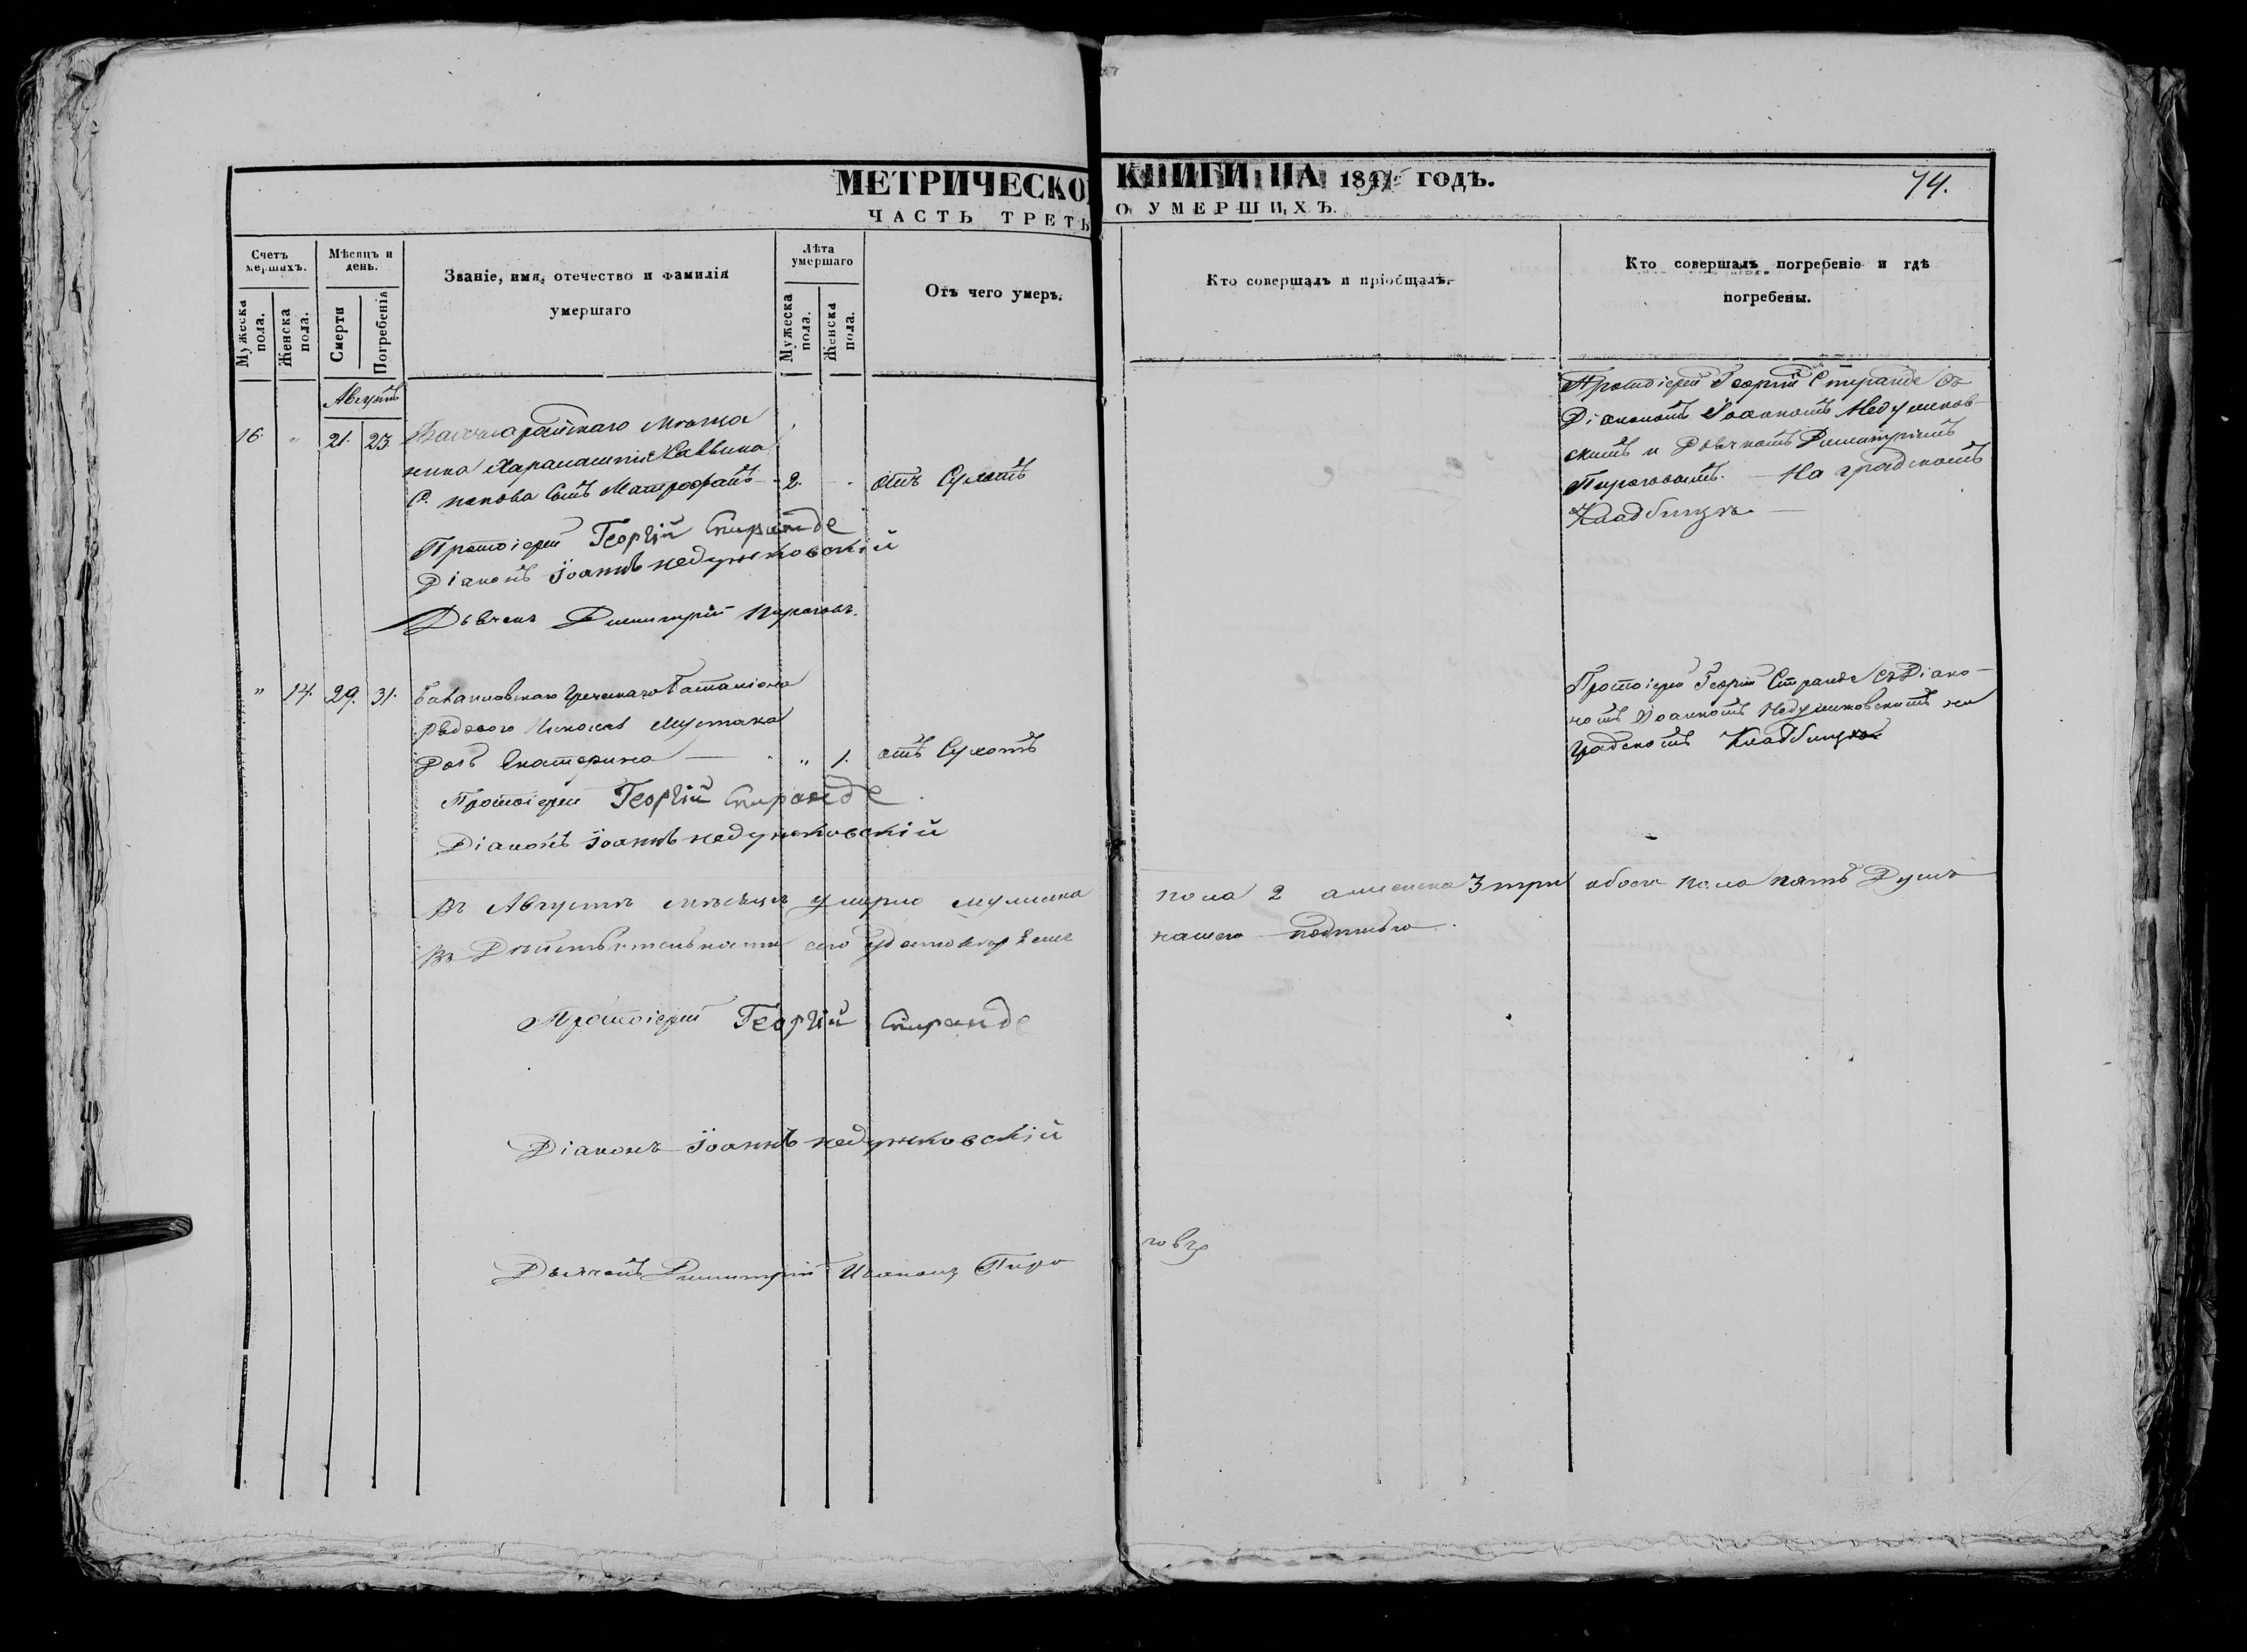 МЕТРИЧЕСКО КНИГИ НА 184 ГОДЪ.
74.
ЧАСТЬ ТРЕТЬ О УМЕРШИХЪ.
Счетъ мершихъ.
Мѣсяцъ и день.
Званіе, имя, отечество и фамилія умершаго
Лѣта умершаго
Отъ чего умеръ.
Кто совершалъ и пріобщалъ.
Кто совершалъ погребеніе и гдѣ погребены.
Мужеска пола.
Женска пола.
Смерти
Погребенія
Мужеска пола.
Женска пола.
Августъ
16. " 21. 23. Бахчисарайскаго Мѣща
нина Харлампія Саввина
Попова Сынъ Митрофанъ 2. отъ Сухотъ
Протоіерей Георгій Спиранде съ
Діакономъ Іоанномъ Недзумков-
скимъ и Дьячкомъ Димитріемъ
Пироговымъ. — На градскомъ
Кладбищѣ —
Протоіерей Георгій Спиранде
Діаконъ Іоаннъ Недзумковскій
Дьячекъ Димитрій Пироговъ.
" 14. 29. 31. Балаклавскаго Греческаго Баталіона
рядоваго Николая Мустака
Дочь Екатерина — " 1. отъ Сухотъ
Протоіерей Георгій Спиранде съ Діако-
номъ Іоанномъ Недзумковскимъ на
градскомъ Кладбищѣ
Протоіерей Георгій Спиранде
Діаконъ Іоаннъ Недзумковскій
Въ Августѣ мѣсяцѣ умерло мужеска пола 2 а женска 3 три обоего пола пять Душъ
Въ Дѣйствительности сего удостовѣряемъ нашею подписью.
Протоіерей Георгій Спиранде
Діаконъ Іоаннъ Недзумковскій
Дьячекъ Димитрій Ивановъ Пиро говъ